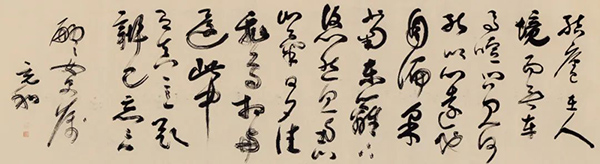 結廬在人
境而無車
馬喧問君何
能爾心遠地
自偏采
菊東籬下
悠然見南山
山氣日夕佳
飛鳥相與
還此中
有真意欲
辨已忘言